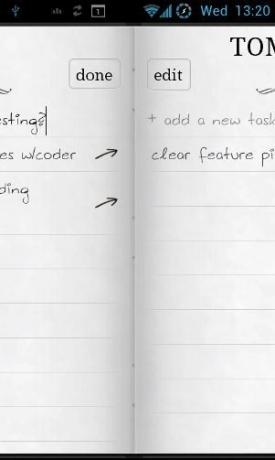 Wed 13:20
TOM
done
edit
esting?
+ add a new task
es w/coder
clear feature pi
ding